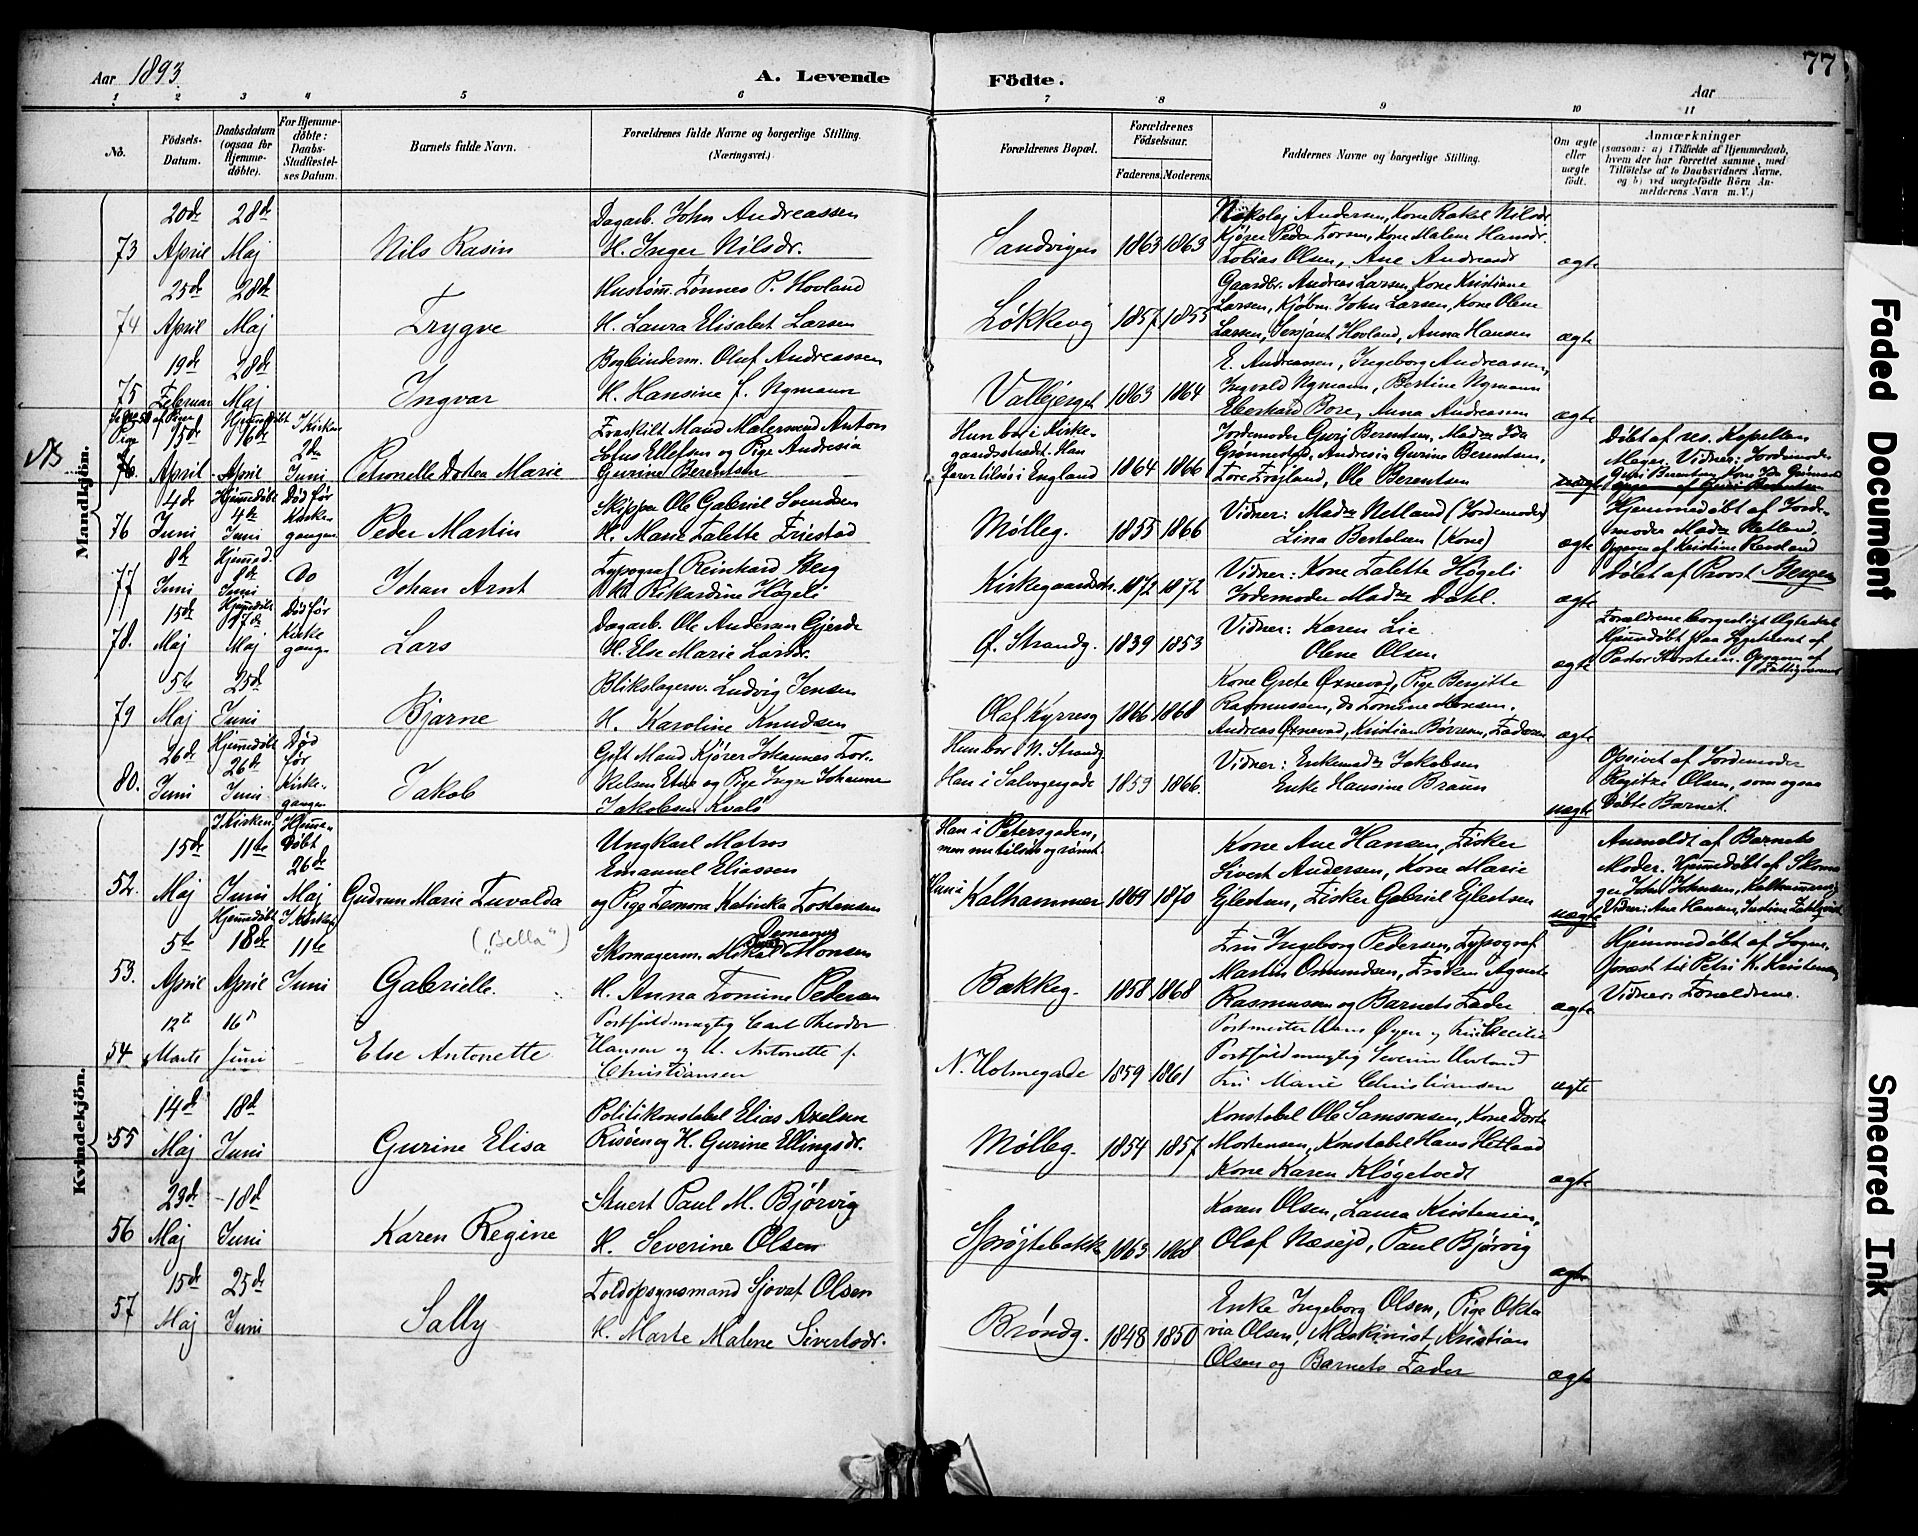 Aar 1893.
A. Levende
Födte.
Aar
77
1 2 3 4 5 6 7 8 9 10 11
No.
Födsels-Datum.
Daabsdatum (ogsaa for Hjemme-döbte).
For Hjemme-döbte: Daabs-Stadfæstel-ses Datum.
Barnets fulde Navn.
Forældrenes fulde Navne og borgerlige Stilling. (Næringsvei.)
Forældrenes Bopæl.
Forældrenes Födselsaar.
Faderens. Moderens.
Faddernes Navne og borgerlige Stilling.
Om ægte eller uægte födt.
Anmærkninger (saasom: a) i Tilfælde af Hjemmedaab, hvem der har forrettet samme, med Tilföielse af to Daabsvidners Navne, og b) ved uægtefödte Börn An-melderens Navn m. V.)
Mandkjön.
73
20de April
28de Maj
Nils Rasin
Dagarb. John Andreassen
H. Inger Nilsdr.
Sandvigen
1863 1863
Nikolaj Andersen, Kone Rakel Nilsdr
Kjører Peder Larsen, Kone Malene Hansdr.
Tobias Olsen, Ane Andreasdr
ægte
74
25de April
28de Maj
Trygve
Hustøm. Tønnes P. Hovland
H. Laura Elisabet Larsen
Løkkevg
1857 1855
Gaardbr. Andreas Larsen, Kone Kristiane
Larsen, Kjøbm. John Larsen, Kone Olene
Larsen, Sersjant Hovland, Anna Hansen
ægte
75
19de Februar
28de Maj
Ingvar
Bogbinderm. Oluf Andreassen
H. Hansine f. Nymann
Valbjerget
1863 1864
E. Andreassen, Ingeborg Andreassen,
Ingvald Nymann, Bertine Nymann
Eberhard Bore, Anna Andreassen
ægte
NB
76.
15de April
Hjemmedøbt 16de April
I Kirken 2den Juni
Petronelle Dortea Marie
Fraskilt Mand Malersvend Anton
Lotus Ellefsen og Pige Andresia
Gurine Berentsen
Hun bor i Kirke-
gaardsstrædet. Han
farer tilsøs i England
1864 1866
Jordemoder Guri Berentsen, Madm Ida
Grønnestad, Andresia Gurine Berentsen,
Tore Frøjland, Ole Berentsen
uægte
Døbt af res. Kapellan
Meyer. Vidner: Jordemoder
Guri Berentsen, Kone Ida Grønnestad
76
4de Juni
Hjemmedøbt 4de Juni
Død før Kirke-gangen
Peder Martin
Skipper Ole Gabriel Svendsen
H. Marie Talette Friestad
Mølleg.
1855 1866
Vidner: Madm Netland (Jordemoder)
Lina Bertelsen (Kone)
ægte
Hjemmedøbt af Jorde-
moder Madm Netland.
77
8de Juni
Hjemmed. 8de Juni
Do
Johan Arnt
Typograf Reinhard Berg
Rikardine Høgeli
Kirkegaardsstr.
1872 1872
Vidner: Kone Talette Høgeli
Jordemoder Madm Dahl.
ægte
Døbt af Provst Bergen
78.
15de Maj
Hjemmedøbt 17de Maj
Død før Kirke gangen
Lars
Dagarb. Ole Andersen Gjerde
H. Else Marie Larsdr.
Ø. Strandg.
1839 1853
Vidner: Karen Lie
Olene Olsen
ægte
Forældrene borgerligt Ægteviet
Hjemmedøbt paa Sygehuset af
79
5te Maj
25de Juni
Bjarne
Blikslagerm. Ludvig Jensen
H. Karoline Knudsen
Olaf Kyrresg
1866 1868
Kone Grete Øxnevad, Pige Bergitte
Rasmussen, do Tomine Jensen.
Andreas Øxnevad, Kristian Børresen, Faderen
ægte
80.
26de Juni
Hjemmedøbt 26de Juni
Død før Kirke-gangen
Jakob
Gift Mand Kjører Johannes Tor-
kelsen Etne og Pige Inger Johanne
Jakobsen Kvalø
Hun bor N. Strandg
Han i Salvagergade
1859 1866.
Vidner: Enkemadm Jakobsen
Enke Hansine Braun
uægte
Opgivet af Jordemoder
Regitze Olsen, som ogsaa
Døbte Barnet.
Kvindekjön.
52.
15de Maj
I Kirken 11te Juni
Hjemme-døbt 26de Maj
Gudrun Marie Tuvalda
Ungkarl Matros
Emanuel Eliassen
og Pige Leonora Katinka Tostensen
Han i Petersgaden,
men nu tilsøs og rømt.
Hun i Kalhammer
1869 1870
Kone Ane Hansen, Fisker
Sivert Andersen, Kone Marie
Ejlertsen, Fisker Gabriel Ejlertsen
uægte
Anmeldt af Barnets
Moder. Hjemmedøbt af Skoma-
ger John Johnsen, Kalhammervg
53.
5te April
Hjemmedøbt 18de April
I Kirken 11te Juni
Gabrielle.
("Bella")
Skomagerm. Mikal Monsen
H. Anna Tomine Pedersen
Bakkeg.
1858 1868
Fru Ingeborg Pedersen, Typograf
Martin Omundsen, Frøken Agnete
Rasmussen og Barnets Fader
ægte
Hjemmedøbt af Sogne-
præst til Petri K. Kristensen
Vidner: Forældrene.
54
12te Marts
16de Juni
Else Antonette
Postfuldmægtig Carl Theodor
Hansen og H. Antonette f.
Christiansen
N. Holmegade
1859 1861
Postmester Hans Øyen og Fru Cecilie
Postfuldmægtig Severin Hovland
Fru Marie Christiansen
ægte
55
14de Maj
18de Juni
Gurine Elisa
Politikonstabel Elias Axelsen
Risøen og H. Gurine Ellingsdr.
Mølleg.
1854 1857
Konstabel Ole Samsonsen, Kone Dorte
Mortensen, Konstabel Hans Hetland
Kone Karen Kløgetvedt
ægte
56
23de Maj
18de Juni
Karen Regine
Stuert Paul M. Bjørvig
H. Severine Olsen
Sprøjtebakke
1863 1868
Karen Olsen, Laura Kristensen,
Olaf Næsejd, Paul Bjørvig
ægte
57
15de Maj
25de Juni
Sally
Toldopsynsmand Sjovat Olsen
H. Marte Malene Sivertsdr.
Brøndg.
1848 1850
Enke Ingeborg Olsen, Pige Okta
via Olsen, Maskinist Kristian
Olsen og Barnets Fader
ægte
Faded Document
Smeared Ink